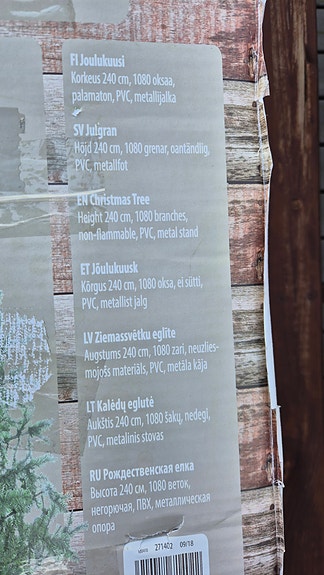 FI Joulukuusi
Korkeus 240 cm, 1080 oksaa,
palamaton, PVC, metallijalka
SV Julgran
Höjd 240 cm, 1080 grenar, oantändlig,
PVC, metallfot
EN Christmas Tree
Height 240 cm, 1080 branches,
non-flammable, PVC, metal stand
ET Jõulukuusk
Kõrgus 240 cm, 1080 oksa, ei sütti,
PVC, metallist jalg
LV Ziemassvētku eglīte
Augstums 240 cm, 1080 zari, neuzlies-
mojošs materiāls, PVC, metāla kāja
LT Kalėdų eglutė
Aukštis 240 cm, 1080 šakų, nedegi,
PVC, metalinis stovas
RU Рождественская елка
Высота 240 см, 1080 веток,
негорючая, ПВХ, металлическая
опора
271402 09/18